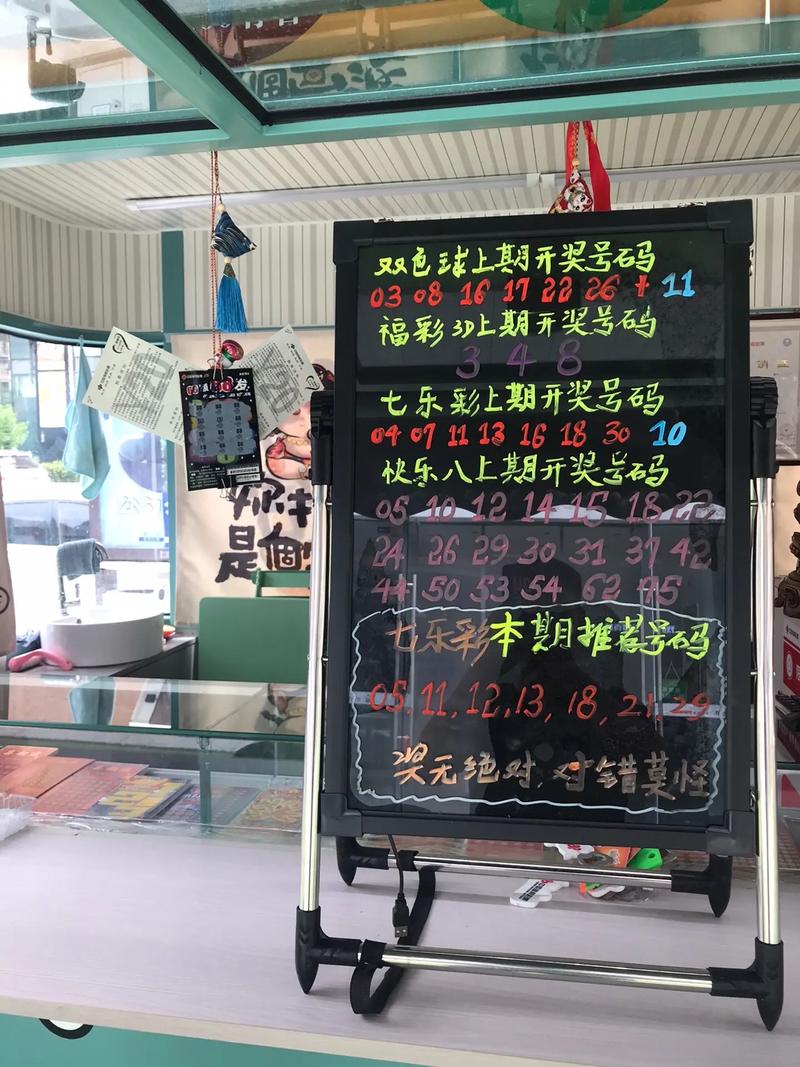 双色球上期开奖号码
03 08 16 17 22 26 + 11
福彩3D上期开奖号码
3 4 8
七乐彩上期开奖号码
04 07 11 13 16 18 30 10
快乐八上期开奖号码
05 10 12 14 15 18 22
24 26 29 30 31 37 42
44 50 53 54 62 75
七乐彩本期推荐号码
05, 11, 12, 13, 18, 21, 29
奖无绝对, 对错莫怪
是個